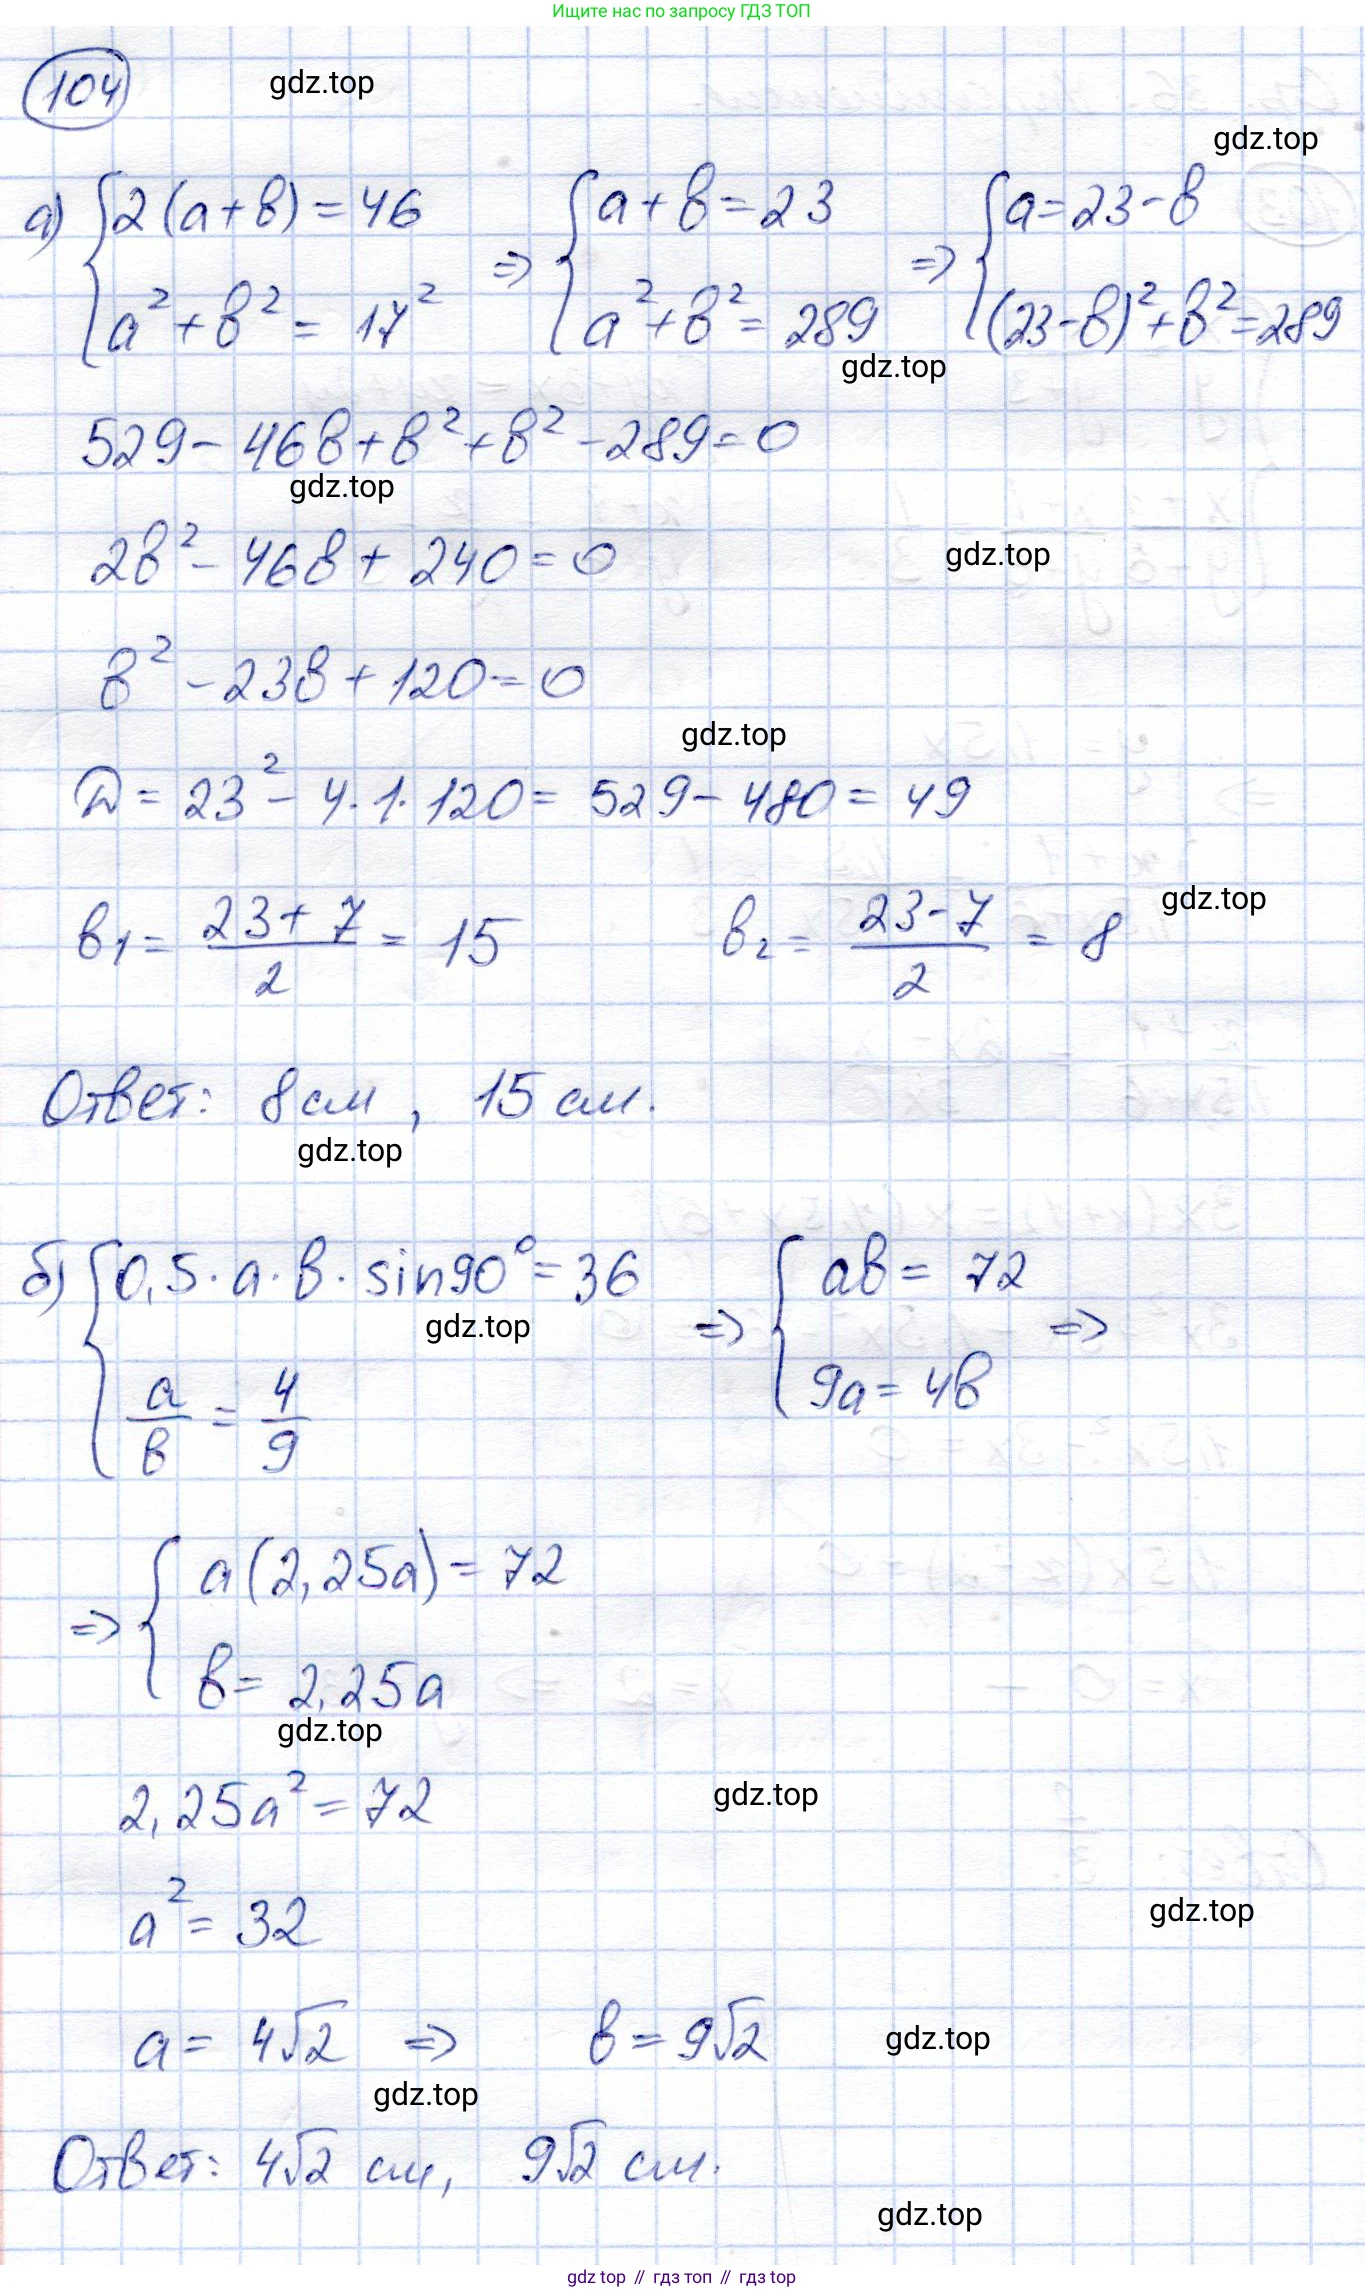 Ищите нас по запросу ГДЗ ТОП
104
gdz.top
gdz.top
а) { 2(a+b)=46 ⇒ { a+b=23 ⇒ { a=23-b
a²+b²=17² a²+b²=289 (23-b)²+b²=289
gdz.top
529-46b+b²+b²-289=0
gdz.top
2b²-46b+240=0
gdz.top
b²-23b+120=0
gdz.top
D=23²-4·1·120=529-480=49
gdz.top
b₁=(23+7)/2=15 b₂=(23-7)/2=8
Ответ: 8 см, 15 см.
gdz.top
б) { 0,5·a·b·sin90°=36 ⇒ { ab=72 ⇒
gdz.top
a/b=4/9 9a=4b
⇒ { a(2,25a)=72
b=2,25a
gdz.top
2,25a²=72
gdz.top
a²=32
gdz.top
a=4√2 ⇒ b=9√2
gdz.top
gdz.top
Ответ: 4√2 см, 9√2 см.
gdz.top
gdz top // гдз топ // гдз top